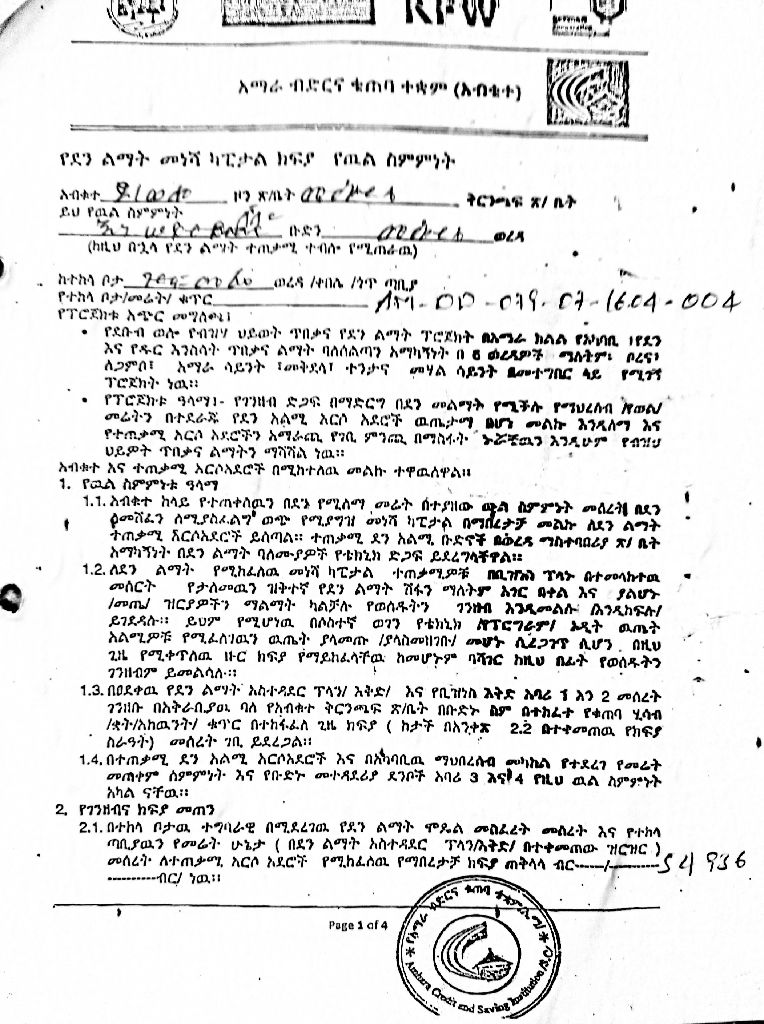 KFW
አማራ ብድርና ቁጠባ ተቋም (አብቁተ)
የደን ልማት መነሻ ካፒታል ክፍያ የዉል ስምምነት
አብቁተ ዞን ጽ/ቤት መቅደላ ቅርንጫፍ ጽ/ ቤት
ይህ የዉል ስምምነት
ቡድን መቅደላ ወረዳ
(ከዚህ በኋላ የደን ልማት ተጠቃሚ ተብሎ የሚጠራዉ)
ከተከላ ቦታ ወረዳ /ቀበሌ /ጎጥ ጣቢያ
የተከላ ቦታ/መሬት/ ቁጥር AM-DD-079-07-1604-004
የፕሮጀክቱ አጭር መግለጫ፤
• የደቡብ ወሎ የብዝሃ ህይወት ጥበቃና የደን ልማት ፕሮጀክት በአማራ ክልል የአካባቢ ፣የደን
እና የዱር እንስሳት ጥበቃና ልማት ባለስልጣን አማካኝነት በ 6 ወረዳዎች ማለትም፡ ቦረና፣
ለጋምቦ፣ አማራ ሳይንት ፣መቅደላ፣ ተንታና መሃል ሳይንት በመተግበር ላይ የሚገኝ
ፕሮጀክት ነዉ።
• የፕሮጀክቱ ዓላማ፤- የገንዘብ ድጋፍ በማድርግ በደን መልማት የሚችሉ የማህረሰብ /የወል/
መሬትን በተደራጁ የደን አልሚ አርሶ አደሮች ዉጤታማ በሆነ መልኩ እንዲለማ እና
የተጠቃሚ አርሶ አደሮችን አማራጪ የገቢ ምንጪ በማስፋት ኑሯቸዉን እንዲሁም የብዝሃ
ህይዎት ጥበቃና ልማትን ማሻሻል ነዉ።
አብቁተ እና ተጠቃሚ አርሶአደሮች በሚከተለዉ መልኩ ተዋዉለዋል።
1. የዉል ስምምነቱ ዓላማ
1.1. አብቁተ ከላይ የተጠቀሰዉን በደን የሚለማ መሬት በተያዘው ውል ስምምነት መሰረት በደን
ለመሸፈን ለሚያስፈልግ ወጭ የሚያግዝ መነሻ ካፒታል በማበረታቻ መልኩ ለደን ልማት
ተጠቃሚ አርሶአደሮች ይሰጣል። ተጠቃሚ ደን አልሚ ቡድኖች በወረዳ ማስተባበሪያ ጽ/ ቤት
አማካኝነት በደን ልማት ባለሙያዎች የቴክኒክ ድጋፍ ይደረግላቸዋል።
1.2. ለደን ልማት የሚከፈለዉ መነሻ ካፒታል ተጠቃሚዎቹ በቢዝነስ ፕላኑ በተመላከተዉ
መሰርት የታለመዉን ዝቅተኛ የደን ልማት ሽፋን ማለትም አገር በቀል እና ያልሆኑ
/መጤ/ ዝርያዎችን ማልማት ካልቻሉ የወሰዱትን ገንዘብ እንዲመልሱ /እንዲከፍሉ/
ይገደዳሉ። ይህም የሚሆነዉ በሶስተኛ ወገን የቴክኒክ /ፕሮግራም/ ኦዲት ዉጤት
አልሚዎቹ የሚፈለገዉን ዉጤት ያላመጡ /ያላስመዘገቡ/ መሆኑ ሲረጋገጥ ሲሆን በዚህ
ጊዜ የሚቀጥለዉ ዙር ክፍያ የማይከፈላቸዉ ከመሆኑም ባሻገር ከዚህ በፊት የወሰዱትን
ገንዘብም ይመልሳሉ።
1.3. በፀደቀዉ የደን ልማት አስተዳደር ፕላን/ እቅድ/ እና የቢዝነስ እቅድ አባሪ 1 እን 2 መሰረት
ገንዘቡ በአቅራቢያዉ ባለ የአብቁተ ቅርንጫፍ ጽ/ቤት በቡድኑ ስም በተከፈተ የቁጠባ ሂሳብ
/ቋት/አከዉንት/ ቁጥር በተከፋፈለ ጊዜ ክፍያ ( ከታች በአንቀጽ 2.2 በተቀመጠዉ የክፍያ
ስራዓት) መሰረት ገቢ ይደረጋል።
1.4. በተጠቃሚ ደን አልሚ አርሶአደሮች እና በአካባቢዉ ማህበረሰብ መካከል የተደረገ የመሬት
መጠቀም ስምምነት እና የቡድኑ መተዳደሪያ ደንቦች አባሪ 3 እና 4 የዚህ ዉል ስምምነት
አካል ናቸዉ።
2. የገንዘብና ክፍያ መጠን
2.1. በተከላ ቦታዉ ተግባራዊ በሚደረገዉ የደን ልማት ሞዴል መስፈረት መሰረት እና የተከላ
ጣቢያዉን የመሬት ሁኔታ ( በደን ልማት አስተዳደር ፕላን/እቅድ/ በተቀመጠው ዝርዝር )
መሰረት ለተጠቃሚ አርሶ አደሮች የሚከፈለዉ የማበረታቻ ክፍያ ጠቅላላ ብር-----/---------54936
----------ብር/ ነዉ።
Page 1 of 4
የአማራ ብድርና ቁጠባ ተቋም
Amhara Credit and Saving Institution /S.C/